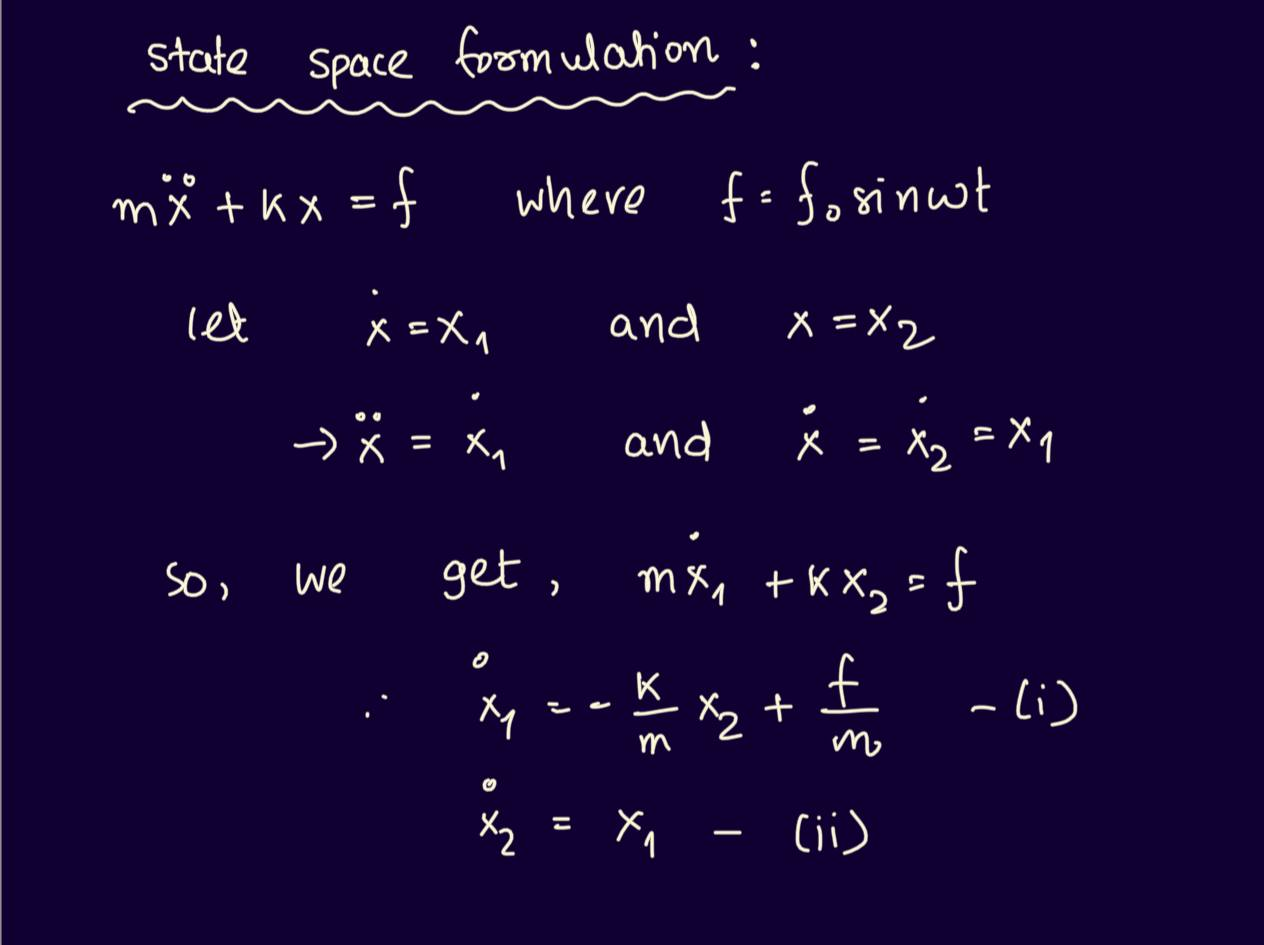 state space formulation :
mẍ + kx = f where f = f₀ sinωt
let ẋ = x₁ and x = x₂
→ ẍ = ẋ₁ and ẋ = ẋ₂ = x₁
so, we get, mẋ₁ + kx₂ = f
∴ ẋ₁ = - k/m x₂ + f/m - (i)
ẋ₂ = x₁ - (ii)